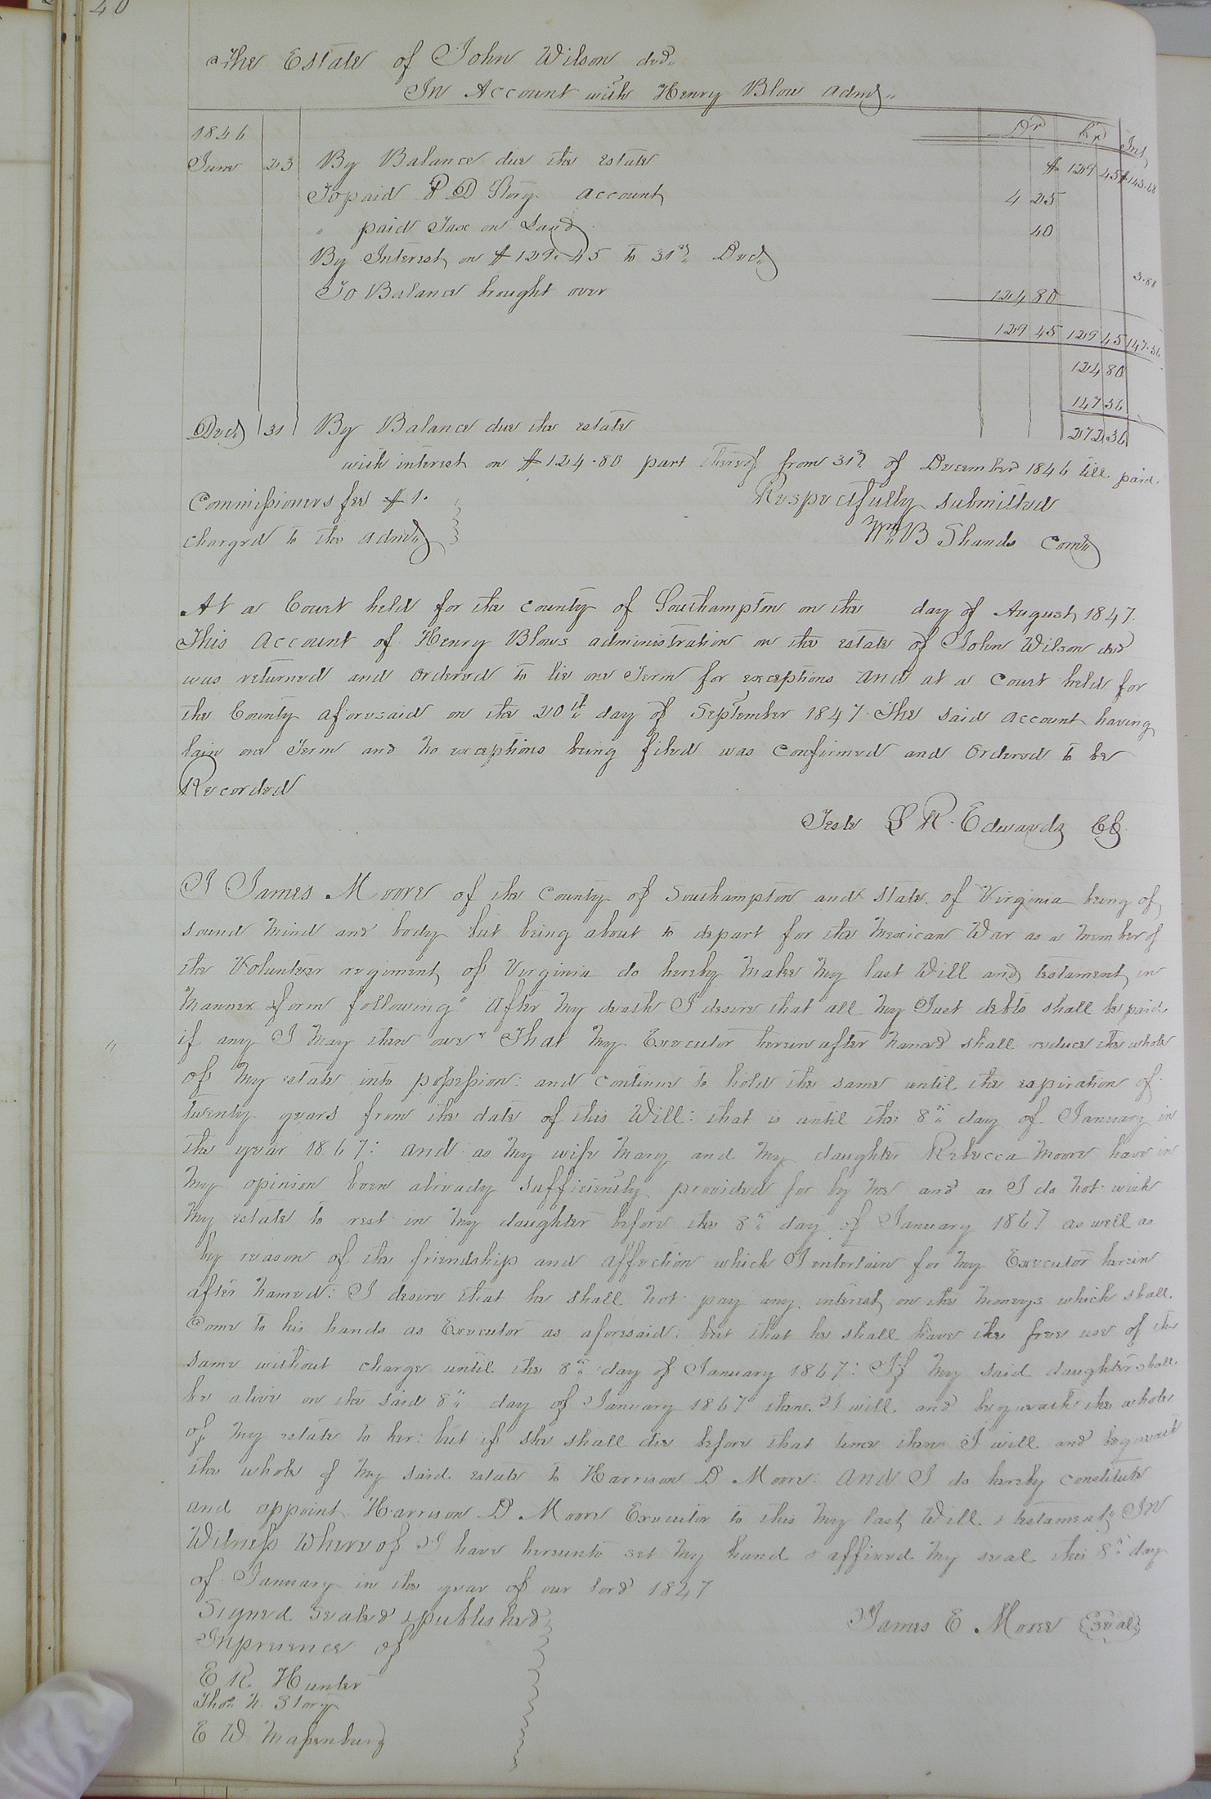 40
The Estate of John Wilson decd.
In Account with Henry Blow Admr.
Dr Cr Int
1846
June 23 By Balance due the estate $ 129 45 $143.68
To paid P D Story account 4 25
" paid Tax on Land 40
By Interest on $129.45 to 31st Decr 3.88
To Balance brought over 124 80
129 45 129 45 147.56
124 80
147 56
Decr 31 By Balance due the estate 272.36
with interest on $124.80 part thereof from 31st of December 1846 till paid.
Commissioners fee $1.
charged to the admr
Respectfully submitted
Wm B Shands Comr
At a Court held for the county of Southampton on the day of August 1847.
This account of Henry Blows administration on the estate of John Wilson decd
was returned and ordered to lie one Term for exceptions And at a Court held for
the County aforesaid on the 20th day of September 1847 The said account having
lain one Term and no exceptions being filed was confirmed and Ordered to be
Recorded
Teste L R. Edwards CC.
I James Moore of the County of Southampton and State of Virginia being of
sound mind and body but being about to depart for the Mexican War as a member of
the Volunteer regiment of Virginia do hereby make my last Will and testament in
manner & form following" After my death I desire that all my Just debts shall be paid
if any I may then owe" That my Executor herein after named shall reduce the whole
of my estate into possession: and continue to hold the same until the expiration of
twenty years from the date of this Will: that is until the 8th day of January in
the year 1867: and as my wife Mary and my daughter Rebecca Moore have in
my opinion been already sufficiently provided for by me and as I do not wish
my estate to rest in my daughter before the 8th day of January 1867 as well as
by reason of the friendship and affection which I entertain for my Executor herein
after named: I desire that he shall not pay any interest on the moneys which shall
Come to his hands as Executor as aforesaid: but that he shall have the free use of the
same without charge until the 8th day of January 1867: If my said daughter shall
be alive on the said 8th day of January 1867 then I will and bequeath the whole
of my estate to her: but if she shall die before that time then I will and bequeath
the whole of my said estate to Harrison D Moore. And I do hereby constitute
and appoint Harrison D Moore Executor to this my last Will & testament. In
Witness Whereof I have hereunto set my hand & affixed my seal this 8th day
of January in the year of our lord 1847
Signed sealed & published
In presence of
E R. Hunter
Thos N. Story
E W Massenburg
James E Moore (Seal)